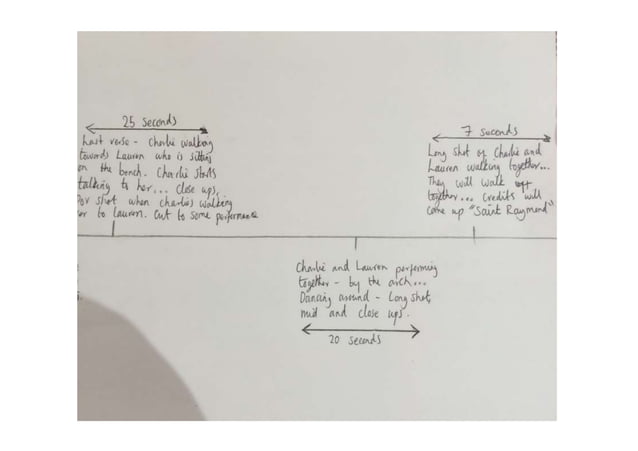 25 seconds
Last verse - Charlie walking
towards Lauren who is sitting
on the bench. Charlie starts
talking to her... close ups,
Pov shot when charlies walking
over to Lauren. Cut to some performance
7 seconds
Long shot of Charlie and
Lauren walking together...
They will walk off
together... credits will
come up "Saint Raymond"
Charlie and Lauren performing
together - by the arch...
Dancing around - Long shot,
mid and close ups.
20 seconds